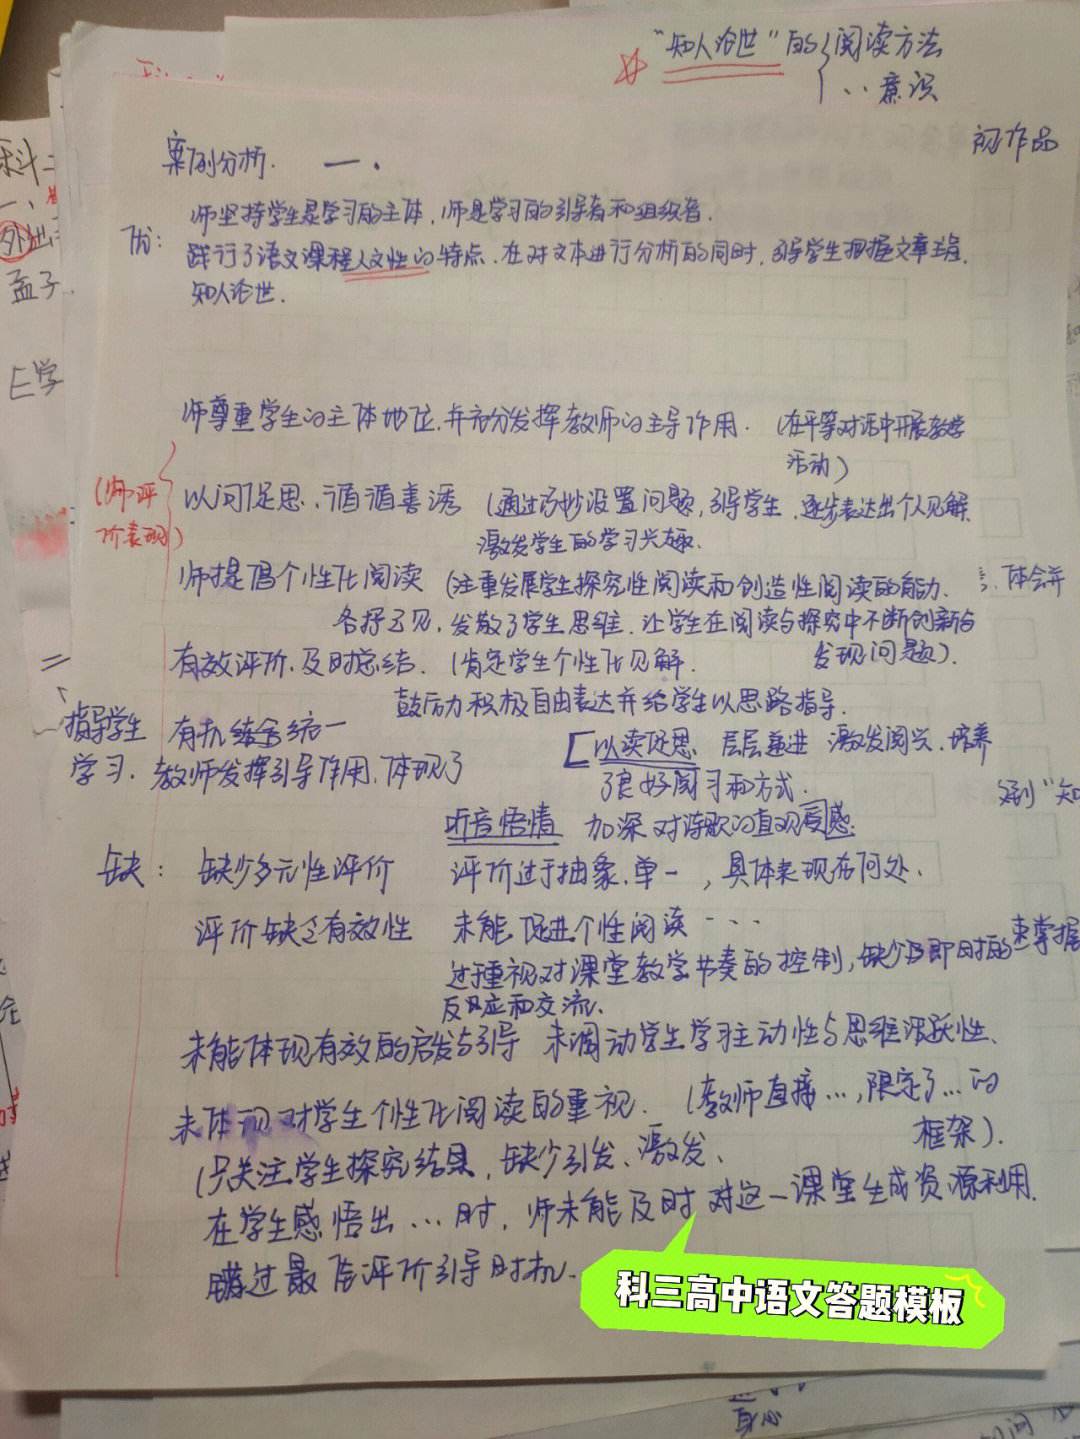 "知人论世"的{阅读方法
..意识
初作品
案例分析. 一.
师坚持学生是学习的主体,师是学习的引导者和组织者.
优:
践行了语文课程人文性的特点.在对文本进行分析的同时,引导学生把握文章
知人论世.
师尊重学生的主体地位,并充分发挥教师的主导作用. (在平等对话中开展教学
活动)
(师评
价表现)
以问促思、循循善诱 (通过巧妙设置问题,引导学生.逐步表达出个人见解
激发学生的学习兴趣.
师提倡个性化阅读 (注重发展学生探究性阅读和创造性阅读的能力.
体会并
各抒己见,发散了学生思维.让学生在阅读与探究中不断创新与
发现问题).
有效评价.及时总结. (肯定学生个性化见解.
鼓励积极自由表达并给学生以思路指导.
指导学生
学习.
有机结合统一
[以读促思 层层递进 激发阅兴.培养
教师发挥引导作用.体现了
良好阅习和方式.
听音悟情 加深对诗歌的直观
缺: 缺少多元性评价 评价过于抽象.单一,具体表现在何处.
评价缺乏有效性 未能促进个性阅读...
过重视对课堂教学节奏的控制,缺少及即时的
掌握
反应和交流.
未能体现有效的启发与引导 未调动学生学习主动性与思维活跃性、
未体现对学生个性化阅读的重视. (教师直接...,限定了...的
框架).
(只关注学生探究结果,缺少引发、激发、
在学生感悟出...时,师未能及时对这一课堂生成资源利用.
错过最佳评价引导时机.
科三高中语文答题模板
孟子